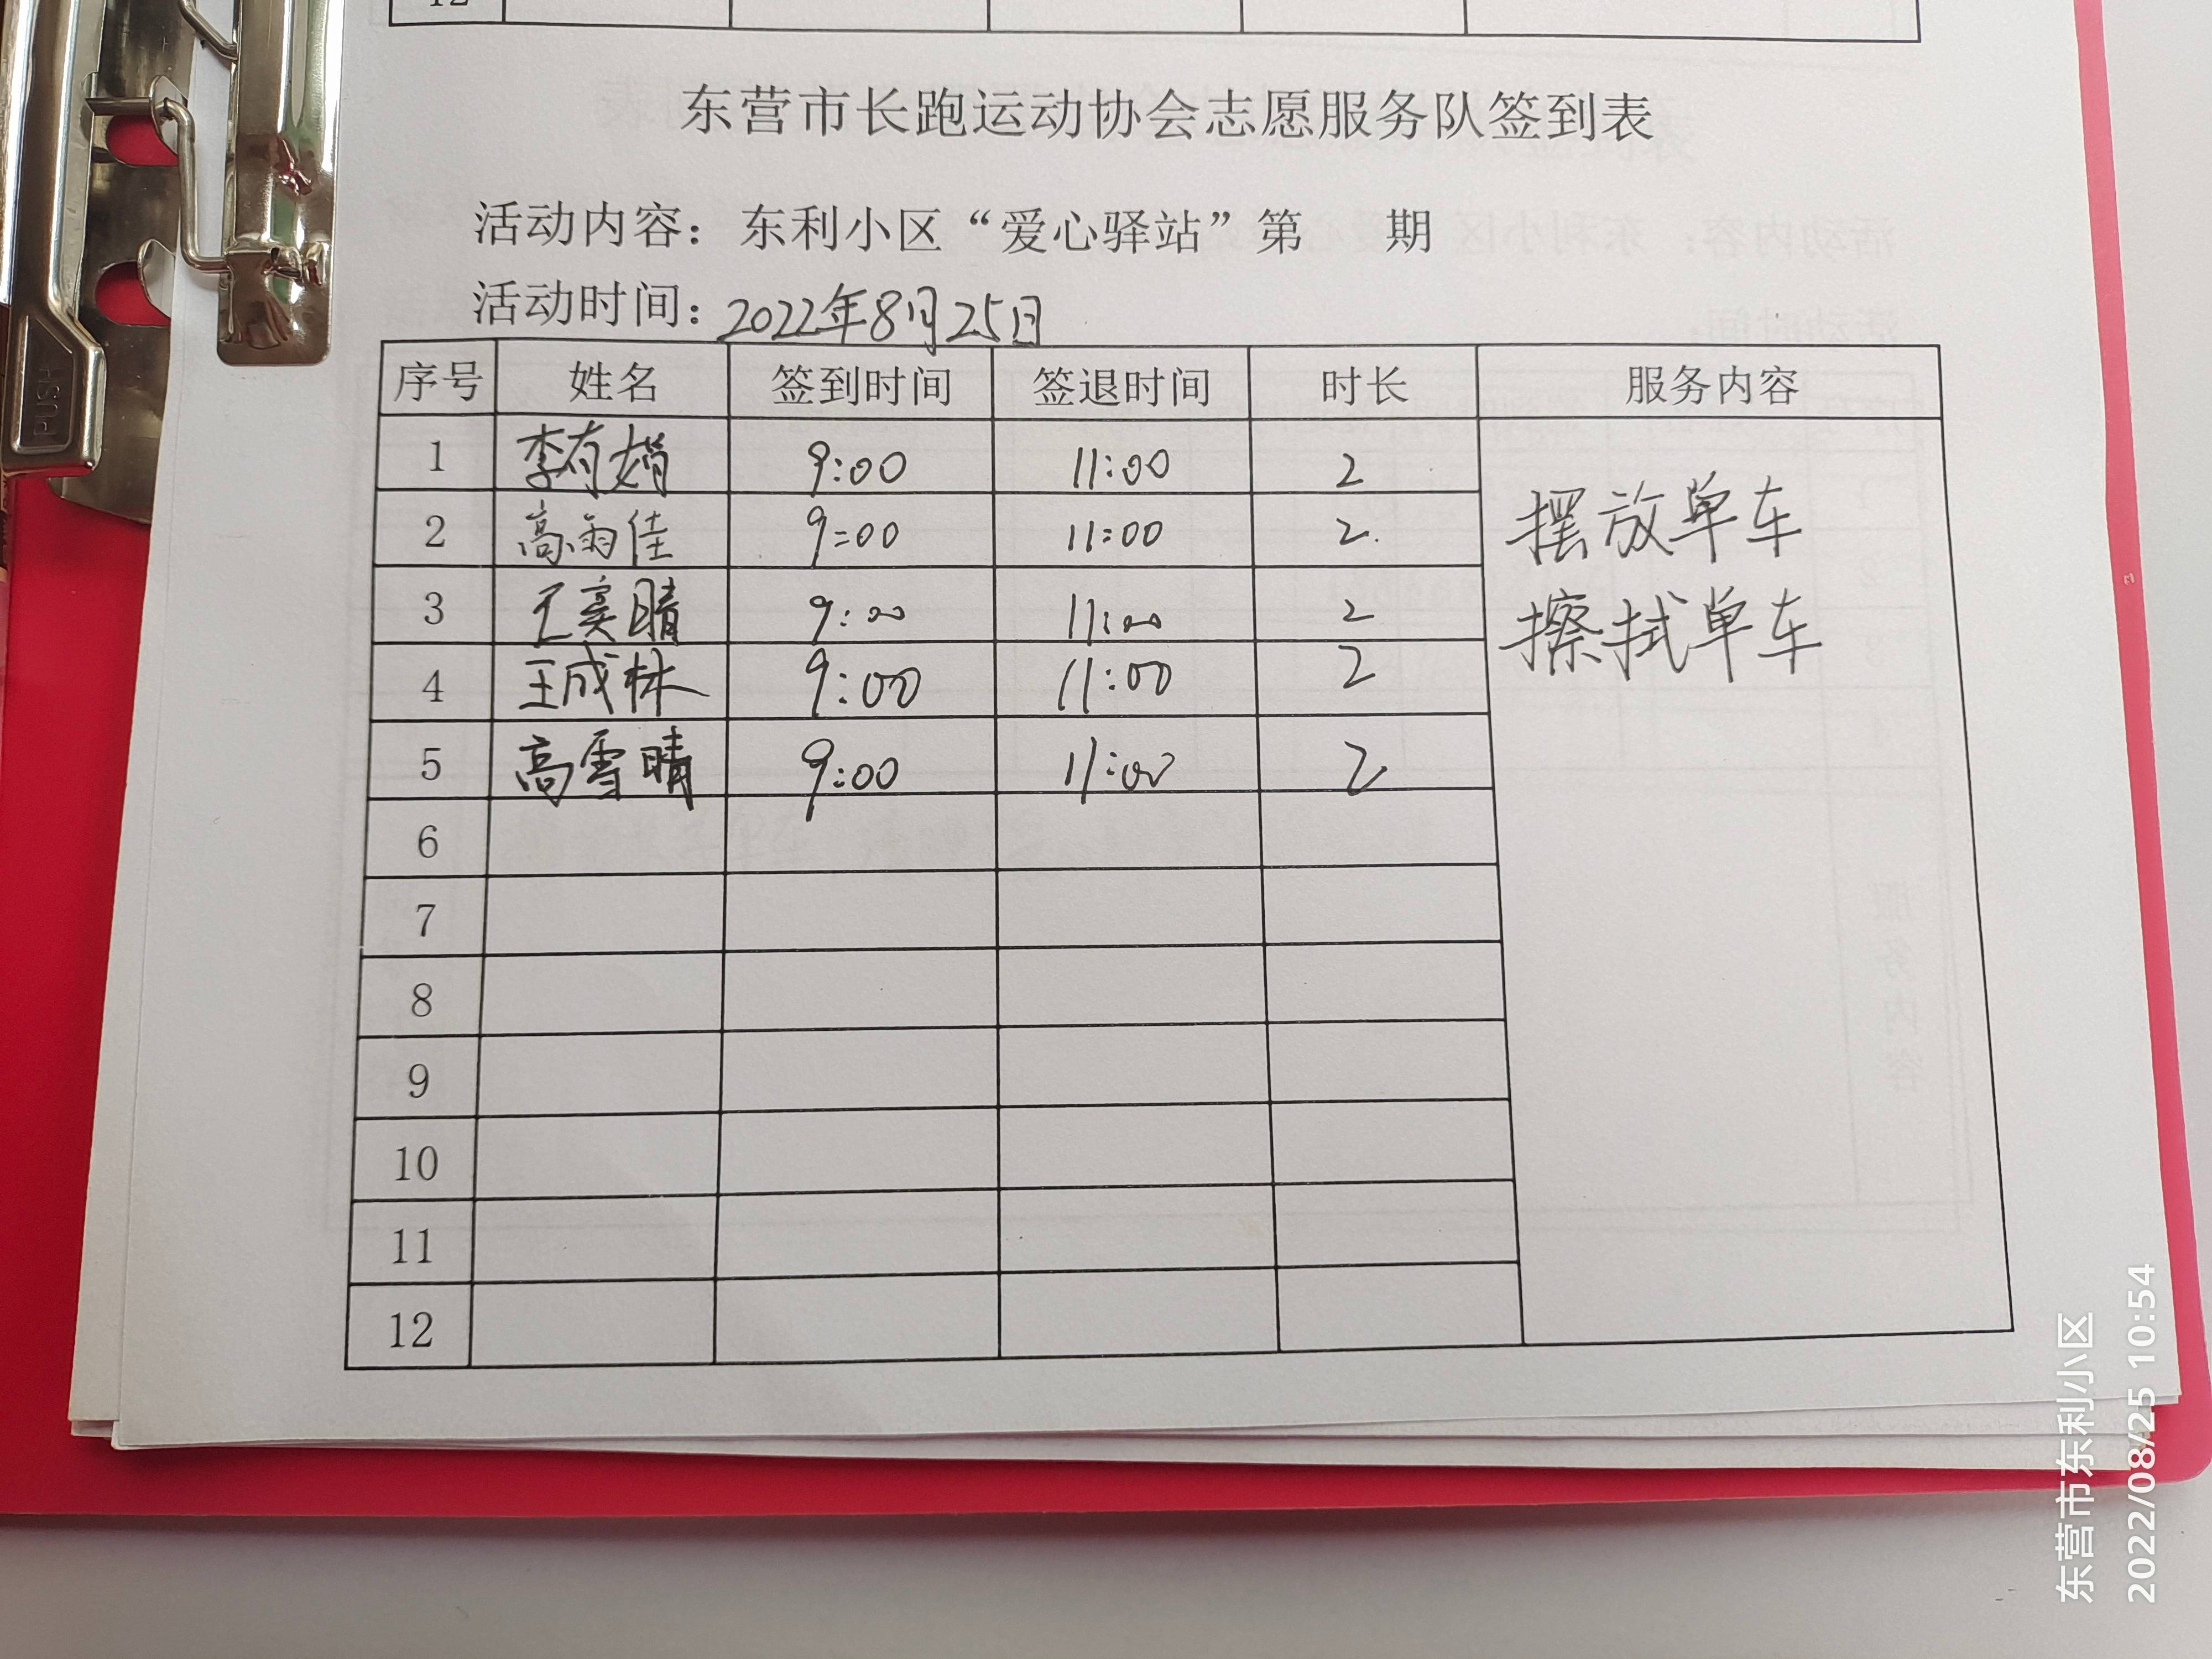 12
东营市长跑运动协会志愿服务队签到表
活动内容：东利小区“爱心驿站”第 期
活动时间：2022年8月25日
序号 姓名 签到时间 签退时间 时长 服务内容
1 李有娟 9:00 11:00 2
2 高雨佳 9:00 11:00 2
摆放单车
3 王奕晴 9:00 11:00 2
擦拭单车
4 王成林 9:00 11:00 2
5 高雪晴 9:00 11:00 2
6
7
8
9
10
11
12
PUSH
东营市东利小区
2022/08/25 10:54